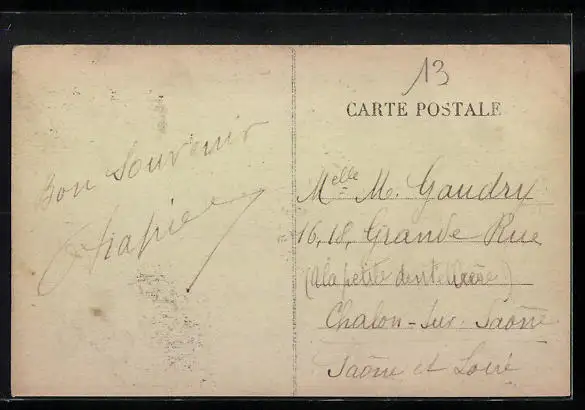 13
CARTE POSTALE
Bon Souvenir
Melle M. Gaudry
16, 18, Grande Rue
(A la petite
Chalon-sur-Saône
Saône et Loire